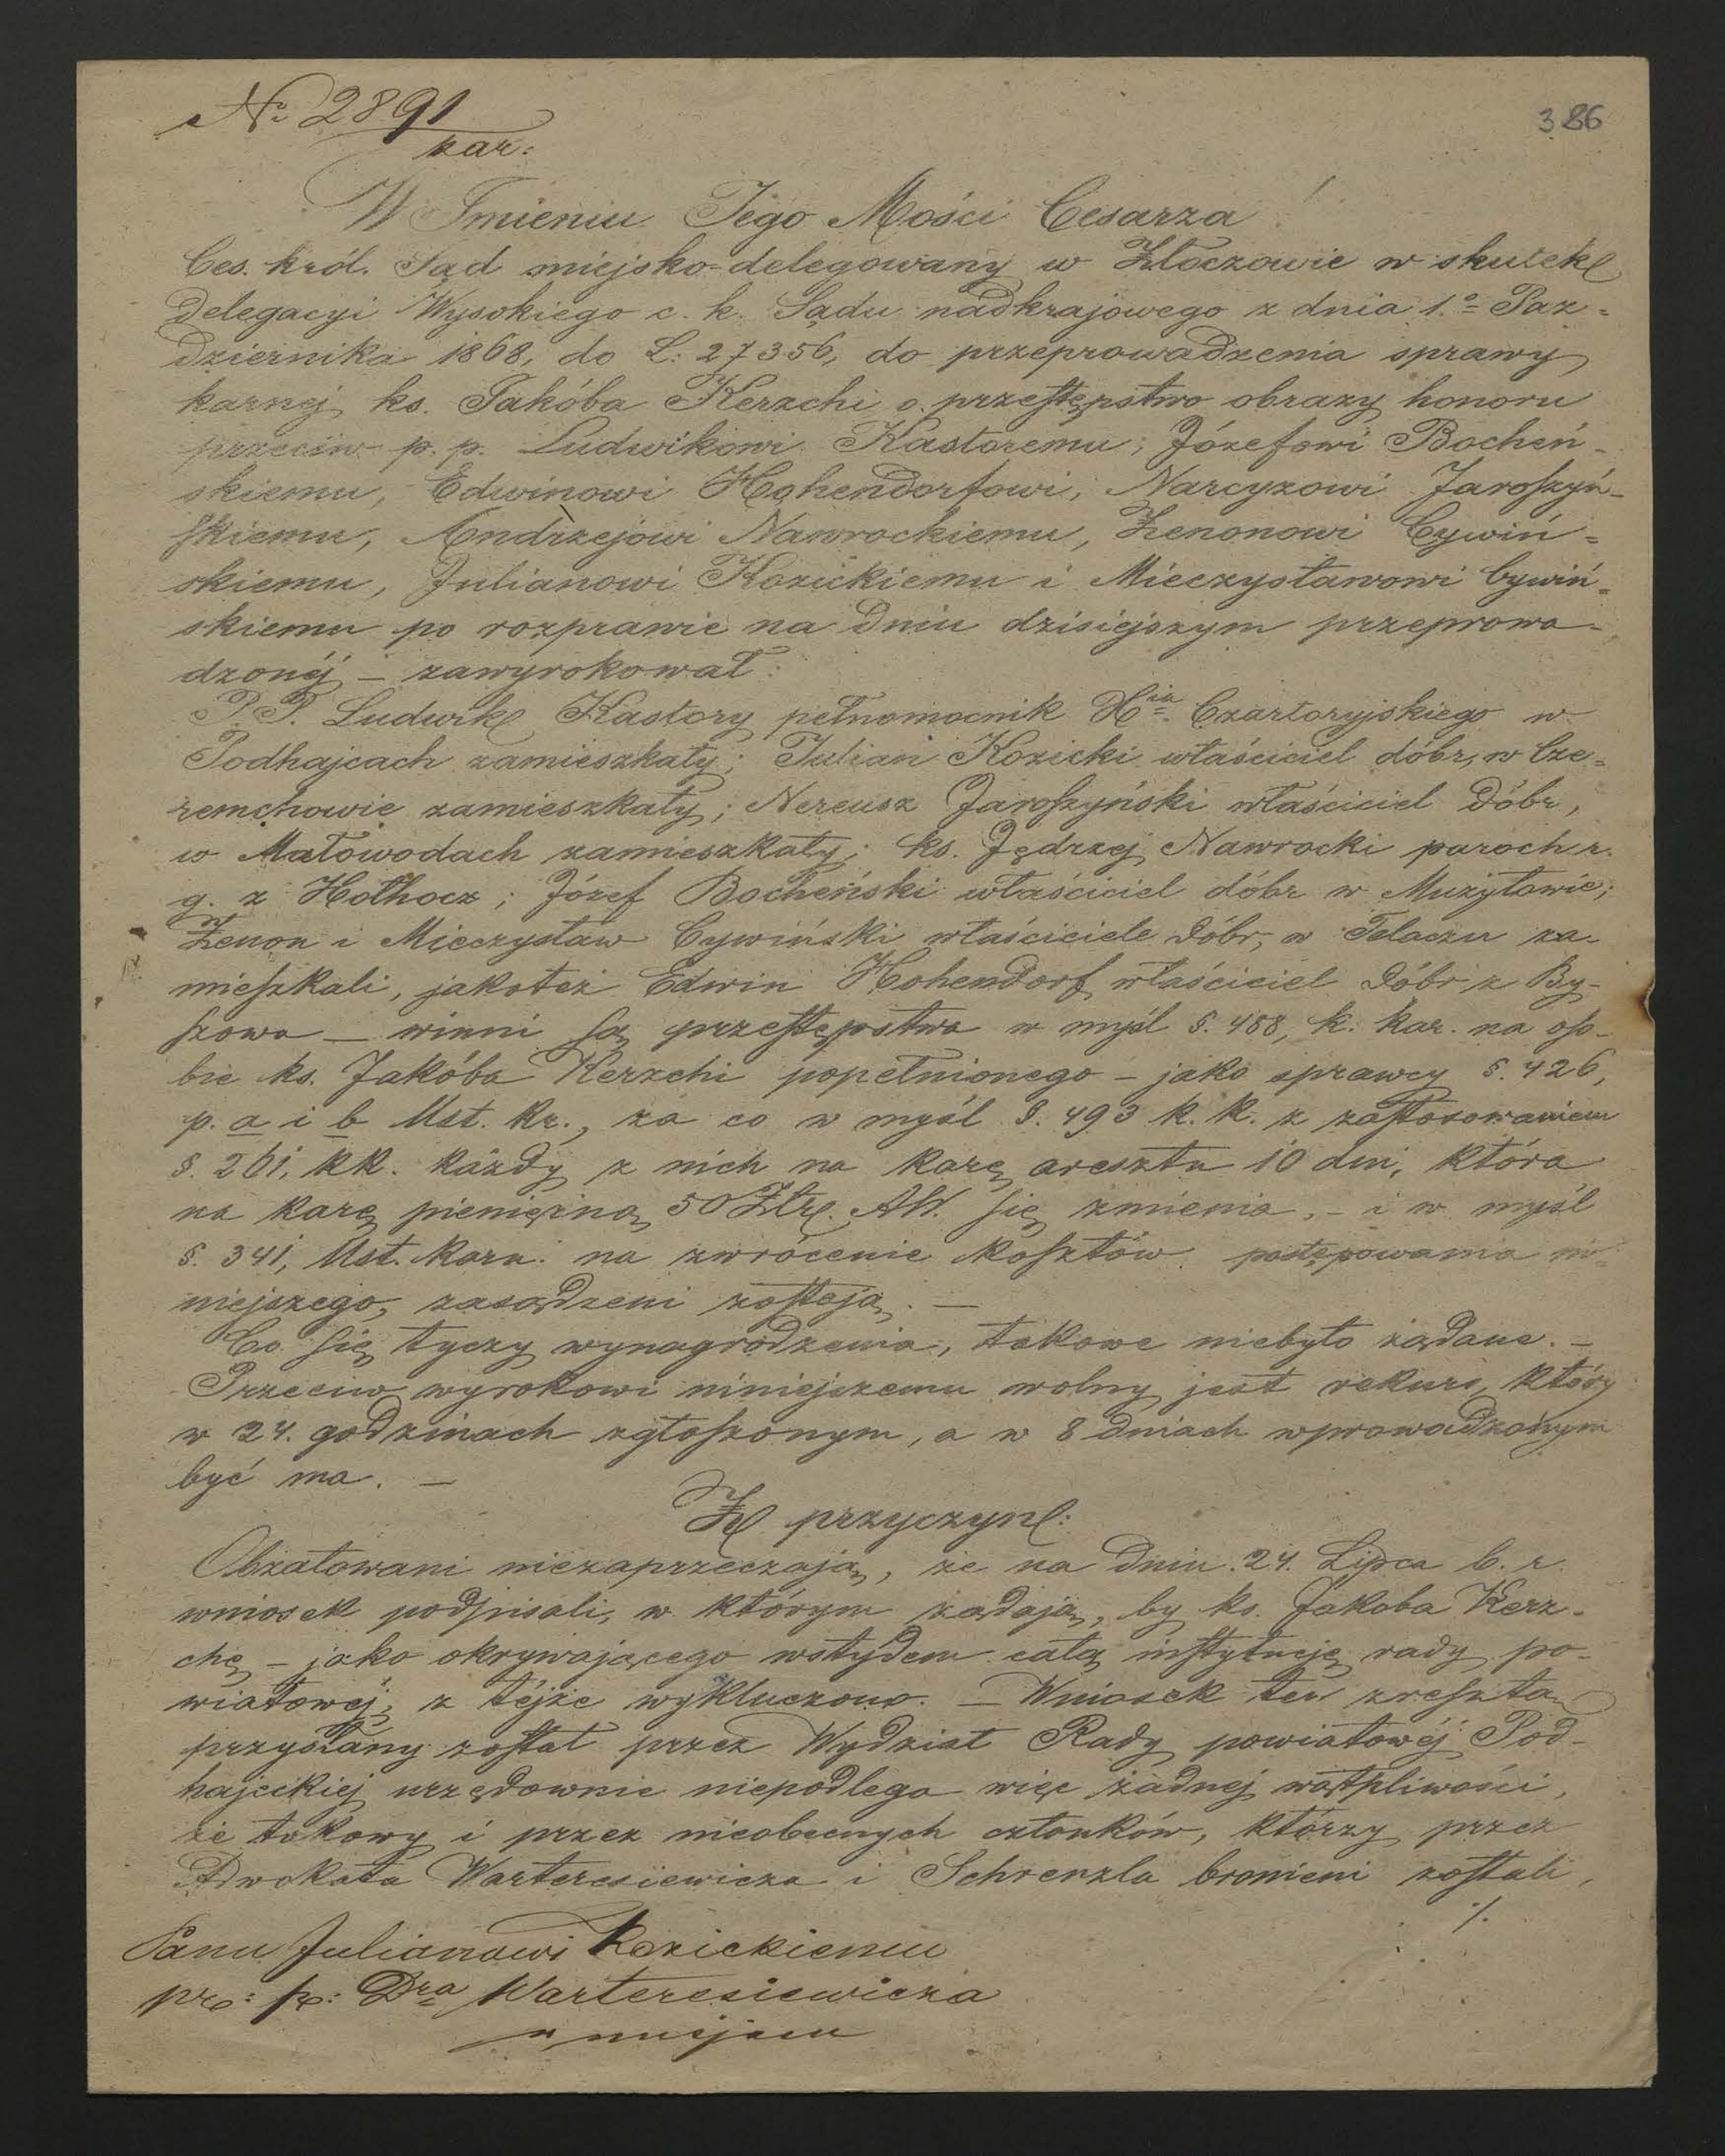 No 2891
kar:
386
W Imieniu Jego Mości Cesarza!
Ces. król. Sąd miejsko-delegowany w Złoczowie w skutek
delegacyi Wysokiego c. k. Sądu nadkrajowego z dnia 1.o Paz-
dziernika 1868, do L: 27356, do przeprowadzenia sprawy
karnej ks. Jakóba Kerzchi o przestępstwo obrazy honoru
przeciw p. p. Ludwikowi Kastoremu, Józefowi Bocheń-
skiemu, Edwinowi Hohendorfowi, Narcyzowi Jaroszyń-
skiemu, Andrzejowi Nawrockiemu, Zenonowi Cywiń-
skiemu, Julianowi Kozickiemu i Mieczysławowi Cywiń-
skiemu po rozprawie na dniu dzisiejszym przeprowa-
dzonéj – zawyrokował:
P.P. Ludwik Kastory pełnomocnik Xia Czartoryjskiego w
Podhajcach zamieszkały; Julian Kozicki właściciel dóbr, w Cze-
remchowie zamieszkały; Nereusz Jaroszyński właściciel dóbr,
w Małowodach zamieszkały; ks. Jędrzej Nawrocki paroch r.
g. z Hołhocz; Józef Bocheński właściciel dóbr w Mużyłowie;
Zenon i Mieczysław Cywiński właściciele dóbr, w Telaczu za-
mieszkali, jakoteż Edwin Hohendorf właściciel dóbr z By-
szowa – winni są przestępstwa w myśl §. 488, k. kar. na oso-
bie ks. Jakóba Kerzchi popełnionego – jako sprawcy §. 426,
p. a i b Ust. kr., za co w myśl §. 493 k. k. z zastosowaniem
§. 261, kk. każdy z nich na karę aresztu 10 dni, która
na karę pieniężną 50 Złr. AW. się zmienia, – i w myśl
§. 341, Ust. karn. na zwrócenie kosztów postępowania ni-
niejszego, zasądzeni zostają. –
Co się tyczy wynagrodzenia, takowe niebyło żądane. –
Przeciw wyrokowi niniejszemu wolny jest rekurs, który
w 24. godzinach zgłoszonym, a w 8 dniach wprowadzonym
być ma. –
Z przyczyn:
Obżałowani niezaprzeczają, że na dniu 24. Lipca b. r.
wniosek podpisali, w którym żądają, by ks. Jakoba Kerz-
chę – jako okrywającego wstydem całą instytucję rady po-
wiatowéj, z téjże wykluczono. – Wniosek ten zresztą
przysłany został przez Wydział Rady powiatowéj Pod-
hajeckiej urzędownie niepodlega więc żadnej wątpliwości,
że takowy i przez nieobecnych członków, którzy przez
Adwokata Warteresiewicza i Schrenzla bronieni zostali,
./.
Panu Julianowi Kozickiemu
prz: p: Dra Warteresiewicza
w miejscu